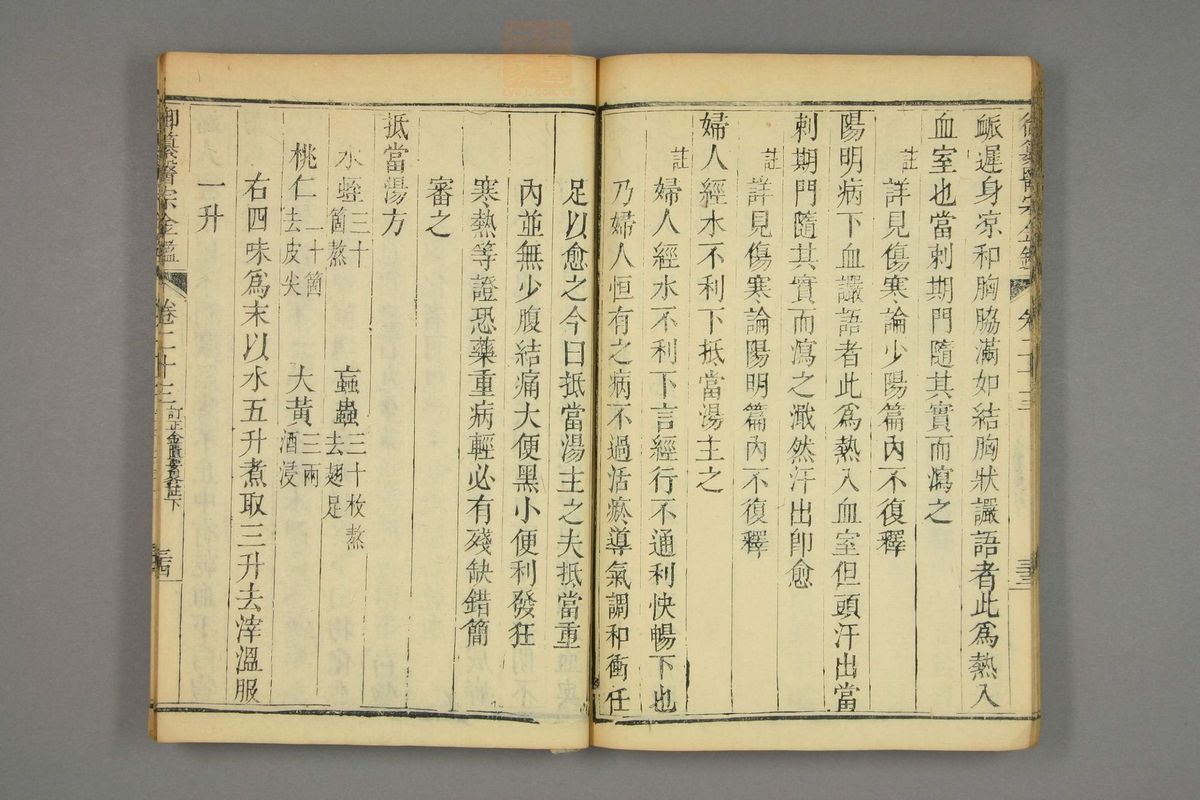 御纂醫宗金鑑 卷二十三 三十三
脈遲身凉和胸脇滿如結胸狀讝語者此爲熱入
血室也當刺期門隨其實而瀉之
註詳見傷寒論少陽篇內不復釋
陽明病下血讝語者此爲熱入血室但頭汗出當
刺期門隨其實而瀉之濈然汗出即愈
註詳見傷寒論陽明篇內不復釋
婦人經水不利下抵當湯主之
註婦人經水不利下言經行不通利快暢下也
乃婦人恒有之病不過活瘀導氣調和衝任
足以愈之今曰抵當湯主之夫抵當重
內並無少腹結痛大便黑小便利發狂
寒熱等證恐藥重病輕必有殘缺錯簡
審之
抵當湯方
水蛭三十箇熬 䖟蟲三十枚熬去翅足
桃仁二十箇去皮尖 大黃三兩酒浸
右四味爲末以水五升煮取三升去滓溫服
一升
御纂醫宗金鑑 卷二十三 訂正金匱要畧註下 三十四